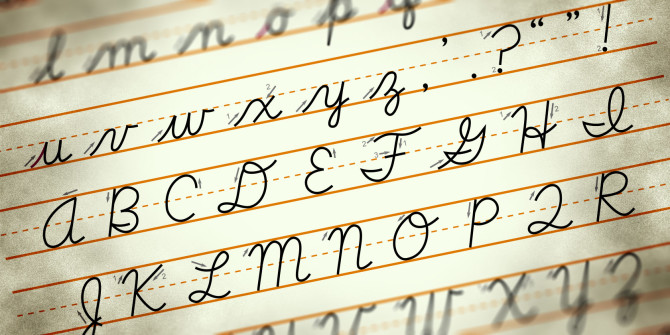 l m n o p q
u v w x y z , ' . ? “ ” !
A B C D E F G H I
J K L M N O P Q R
V W X Y Z